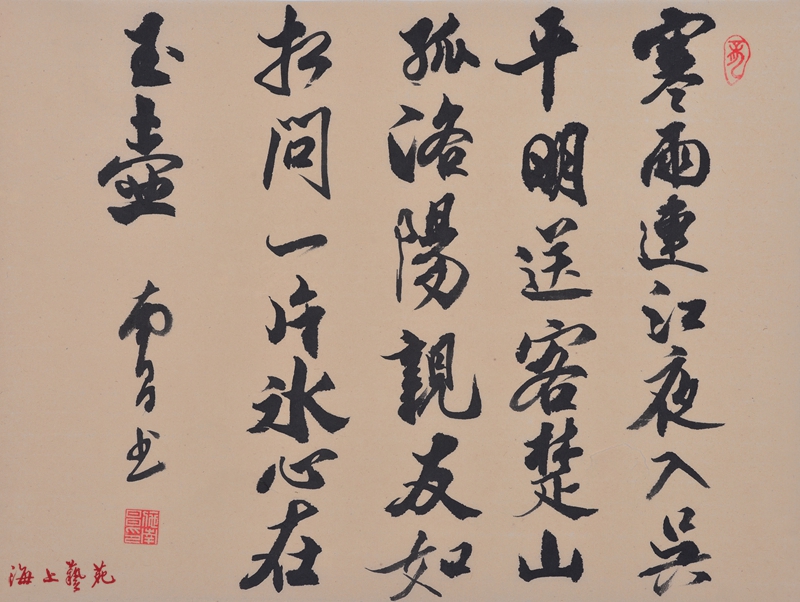 寒雨連江夜入吳
平明送客楚山
孤洛陽親友如
相問一片冰心在
玉壺
南昌书
海上藝苑